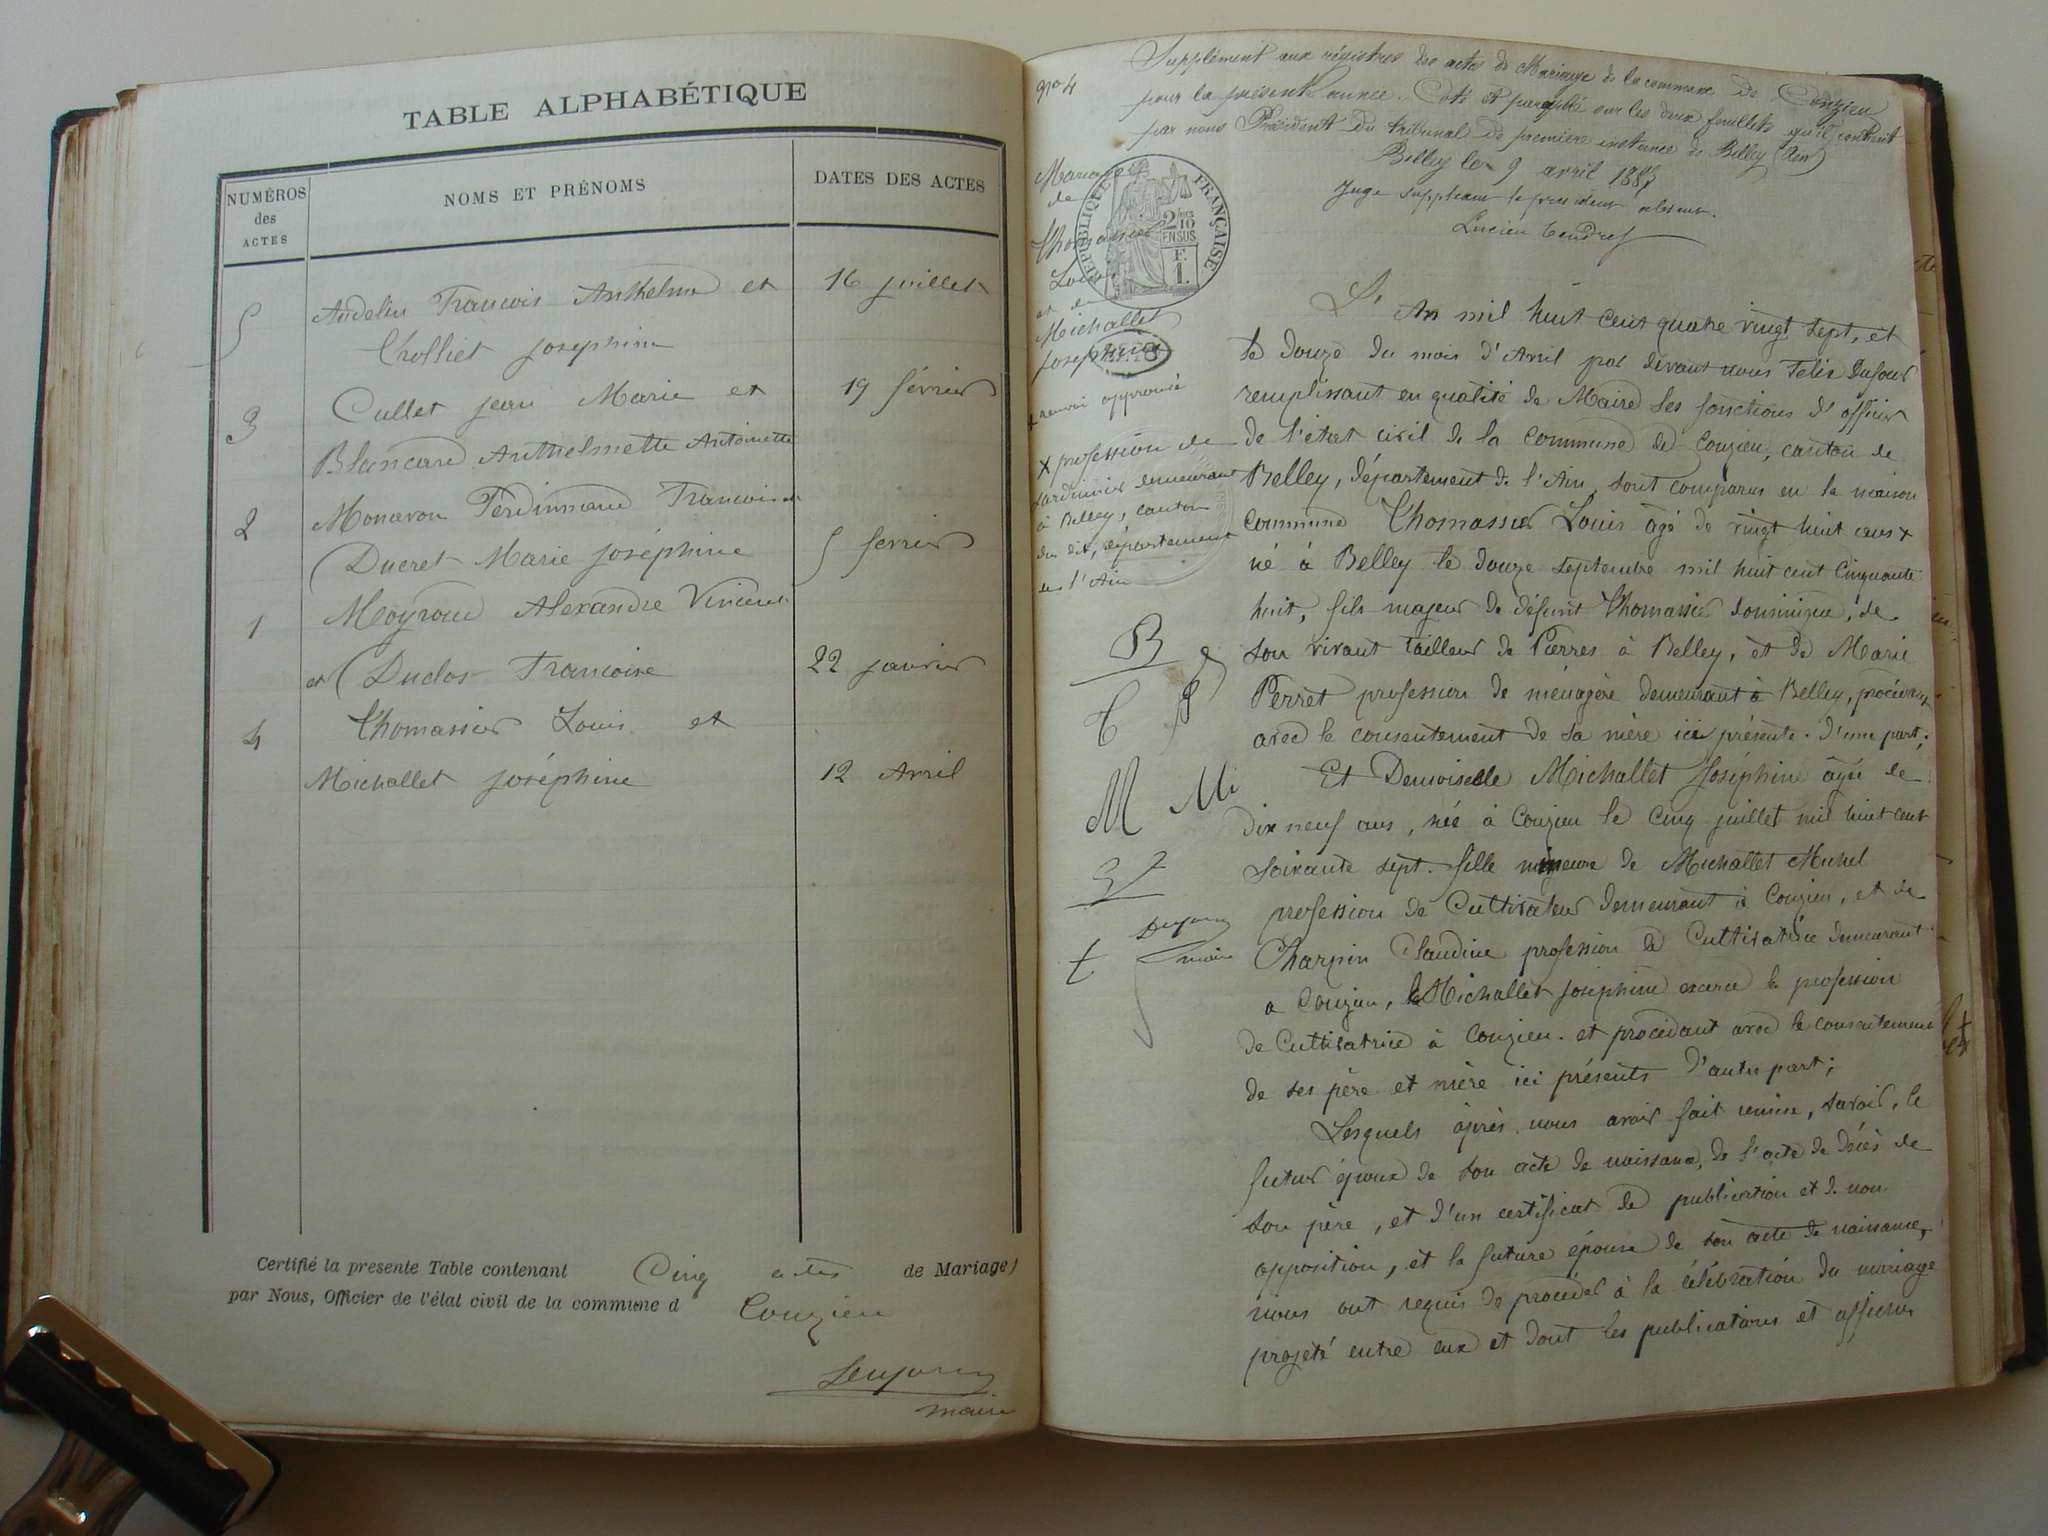 TABLE ALPHABÉTIQUE
NUMÉROS des ACTES
NOMS ET PRÉNOMS
DATES DES ACTES
5 Audelin Francois Anthelme et 16 juillet
Cholliet josephine
3 Cullet jean Marie et 19 février
Blancard Anthelmette Antoinette
2 Monavon Ferdinnand Francois et
Ducret Marie joséphine 5 ferrier
1 Moyroud Alexandre Vincent
et Duclos Francoise 22 janvier
4 Thomassier Louis et
Michallet joséphine 12 Avril
Certifié la présente Table contenant Cinq actes de Mariage
par Nous, Officier de l'état civil de la commune d Conzieu
maire
No 4
Supplément aux régistres des actes de Mariage de la commune de Conzieu
pour la présente année. Coté et paraphé sur les deux feuillets qu'il contient
par nous Président du tribunal de première instance de Belley (Ain)
Belley le 9 avril 1887
Juge suppléant le président absent.
Lucien Tendret
Mariage
de
Thomassier
Louis
et de
Michallet
Josephine
RÉPUBLIQUE FRANÇAISE
2/10 EN SUS
F. 1.
renvoi approuvé
x profession de
jardinier demeurant
à Belley, canton
du dit, département
de l'Ain
B
T
M Mi
t
maire
L'An mil huit cent quatre vingt sept, et
le douze du mois d'Avril par devant nous Félix Dufour
remplissant en qualité de Maire les fonctions d'officier
de l'état civil de la commune de Conzieu, canton de
Belley, département de l'Ain, sont comparus en la maison
commune Thomassier Louis âgé de vingt huit ans x
né à Belley le douze septembre mil huit cent cinquante
huit, fils majeur de défunt Thomassier dominique, de
son vivant tailleur de Pierres à Belley, et de Marie
Perret profession de ménagère demeurant à Belley, procédant
avec le consentement de sa mère ici présente. d'une part;
Et Demoiselle Michallet Joséphine âgée de
dix neuf ans, née à Conzieu le cinq juillet mil huit cent
soixante sept. fille mineure de Michallet Michel
profession de Cultivateur demeurant à Conzieu, et de
Charpin Claudine profession de Cultivatrice demeurant
a Conzieu, la Michallet Joséphine exerce la profession
de Cultivatrice à Conzieu. et procédant avec le consentement
de ses père et mère ici présents d'autre part;
Lesquels après nous avoir fait remise, savoir, le
futur époux de son acte de naissance, de l'acte de décès de
son père, et d'un certificat de publication et de non
opposition, et la future épouse de son acte de naissance,
nous ont requis de procéder à la célébration du mariage
projeté entre eux et dont les publications et affiches